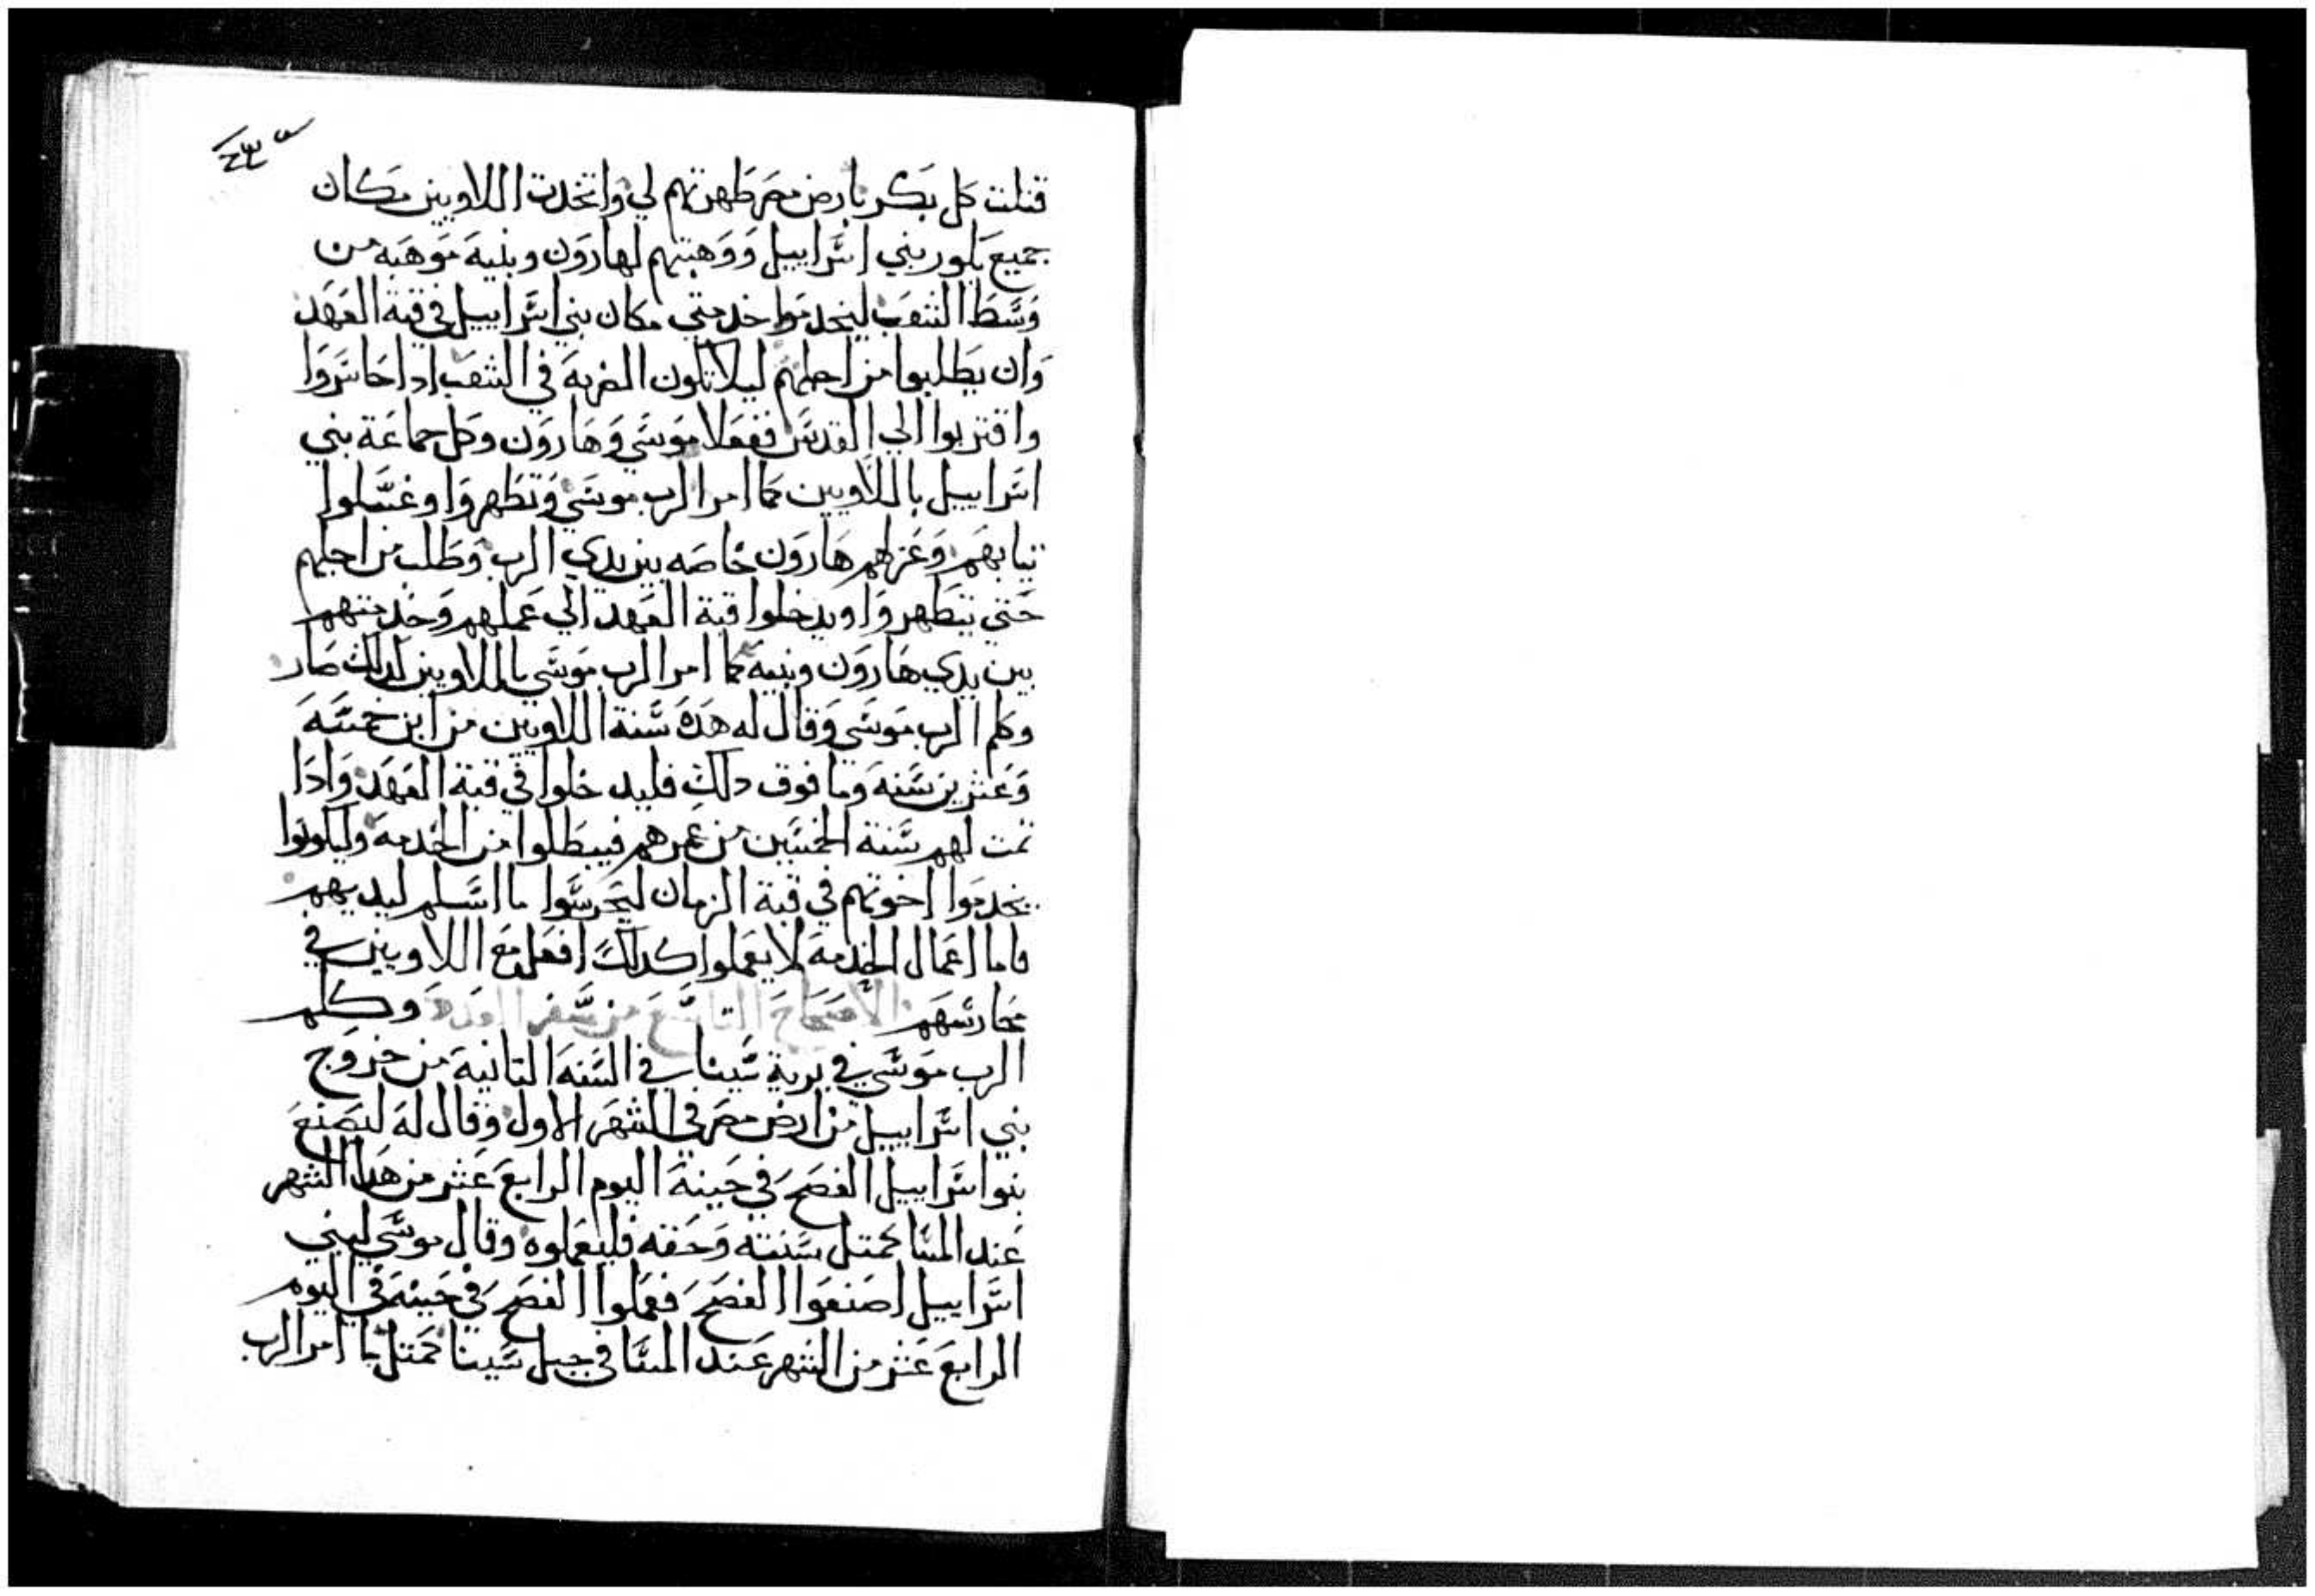 قتلت كل بكر بارض مصر طهرتهم لي واتخدت اللاويين مكان
جميع بكور بني اسراييل ووهبتهم لهارون وبنيه موهبه من
وسط الشعب ليخدموا خدمتي مكان بني اسراييل في قبة العهد
وان يطلبوا من اجلهم ليلا تكون الضربه في الشعب ادا جاسروا
واقتربوا الي القدس ففعلا موسي وهارون وكل جماعة بني
اسراييل باللاويين كما امر الرب موسي وتطهروا وغسلوا
تيابهم وعزلهم هارون خاصه بين يدي الرب وطلب من اجلهم
حتي يتطهروا ويدخلوا قبة العهد الي عملهم وخدمتهم
بين يدي هارون وبنيه كما امر الرب موسي باللاويين كدلك صار
وكلم الرب موسي وقال له هده سنة اللاويين من ابن خمسه
وعشرين سنه وما فوق دلك فليدخلوا في قبة العهد وادا
تمت لهم سنة الخمسين من عمرهم فيبطلوا من الخدمه وليكونوا
يخدموا اخوتهم في قبة الزمان ليحرسوا ما اسلم ليديهم
فاما اعمال الخدمه لا يعملوا كدلك افعل مع اللاويين في
محارسهم الاصحاح التاسع من سفر العدد وكلم
الرب موسي في برية سينا في السنه التانية من خروج
بني اسراييل من ارض مصر في الشهر الاول وقال له ليصنع
بنوا اسراييل الفصح في حينه اليوم الرابع عشر من هدا الشهر
عند المسا كمتل سنته وحقه فليعملوه وقال موسي لبني
اسراييل اصنعوا الفصح فعملوا الفصح في حينه في اليوم
الرابع عشر من الشهر عند المسا في جبل سينا كمتل ما امر الرب